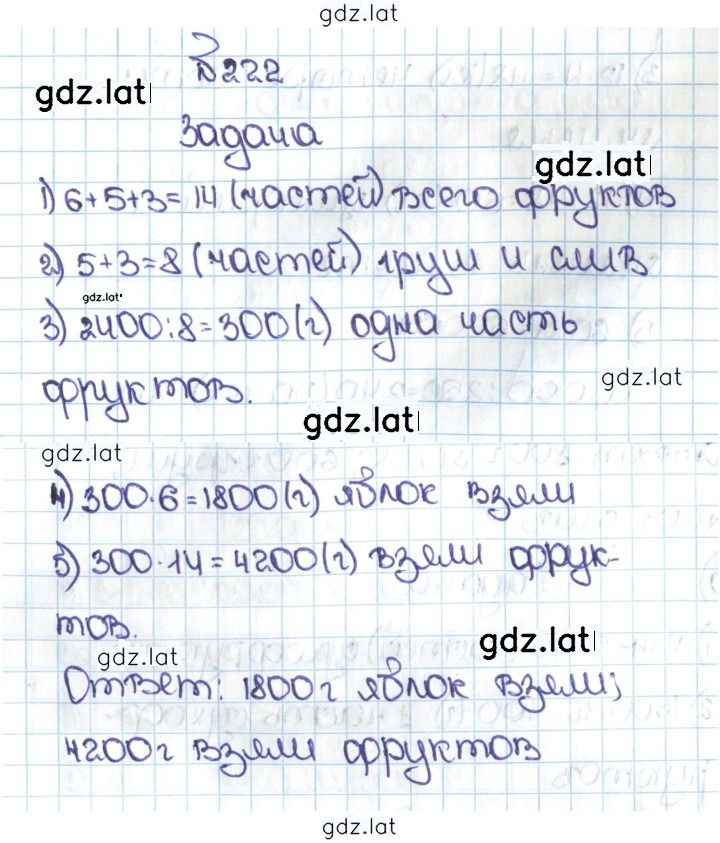 gdz.lat
№222
gdz.lat
Задача
gdz.lat
1) 6+5+3=14 (частей) всего фруктов
2) 5+3=8 (частей) груш и слив
gdz.lat
3) 2400:8=300(г) одна часть
gdz.lat
фруктов.
gdz.lat
gdz.lat
4) 300·6=1800(г) яблок взяли
5) 300·14=4200(г) взяли фрук-
тов.
gdz.lat
gdz.lat
Ответ: 1800г яблок взяли;
4200г взяли фруктов
gdz.lat